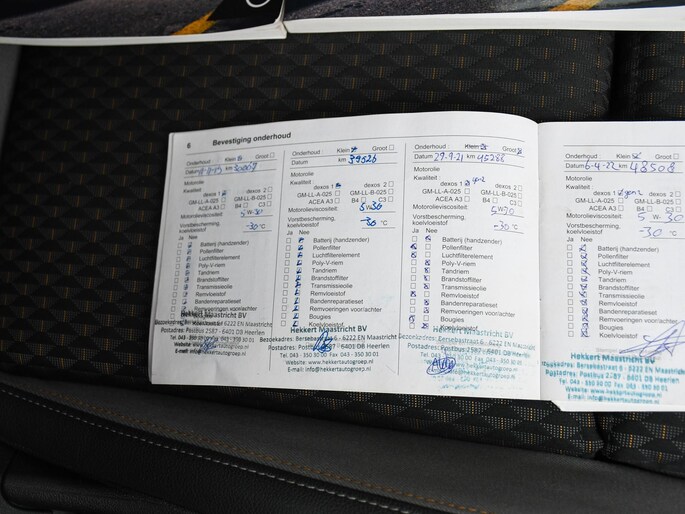 6 Bevestiging onderhoud
Onderhoud : Klein Groot
Datum km 30007
Motorolie
Kwaliteit
dexos 1 dexos 2
GM-LL-A-025 GM-LL-B-025
ACEA A3 B4 C3
Motorolieviscositeit: 5 W 30
Vorstbescherming,
koelvloeistof -30 °C
Ja Nee
Batterij (handzender)
Pollenfilter
Luchtfilterelement
Poly-V-riem
Tandriem
Brandstoffilter
Transmissieolie
Remvloeistof
Bandenreparatieset
Remvoeringen voor/achter
Bougies
Koelvloeistof
Hekkert Maastricht BV
Bezoekadres: Bersebastraat 6 - 6222 EN Maastricht
Postadres: Postbus 2587 - 6401 DB Heerlen
Tel. 043 - 350 30 00 Fax 043 - 350 30 01
Website: www.hekkertautogroep.nl
E-mail: info@hekkertautogroep.nl
Onderhoud : Klein Groot
Datum km 39526
Motorolie
Kwaliteit :
dexos 1 dexos 2
GM-LL-A-025 GM-LL-B-025
ACEA A3 B4 C3
Motorolieviscositeit: 5 W 30
Vorstbescherming,
koelvloeistof -30 °C
Ja Nee
Batterij (handzender)
Pollenfilter
Luchtfilterelement
Poly-V-riem
Tandriem
Brandstoffilter
Transmissieolie
Remvloeistof
Bandenreparatieset
Remvoeringen voor/achter
Bougies
Koelvloeistof
Hekkert Maastricht BV
Bezoekadres: Bersebastraat 6 - 6222 EN Maastricht
Postadres: Postbus 2587 - 6401 DB Heerlen
Tel. 043 - 350 30 00 Fax 043 - 350 30 01
Website: www.hekkertautogroep.nl
E-mail: info@hekkertautogroep.nl
Onderhoud : Klein Groot
Datum 29-9-21 km 45288
Motorolie
Kwaliteit :
dexos 1 gen2 dexos 2
GM-LL-A-025 GM-LL-B-025
ACEA A3 B4 C3
Motorolieviscositeit: 5 W 30
Vorstbescherming,
koelvloeistof -30 °C
Ja Nee
Batterij (handzender)
Pollenfilter
Luchtfilterelement
Poly-V-riem
Tandriem
Brandstoffilter
Transmissieolie
Remvloeistof
Bandenreparatieset
Remvoeringen voor/achter
Bougies
Koelvloeistof
Hekkert Maastricht BV
Onderhoud : Klein Groot
Datum 6-4-22 km 48508
Motorolie
Kwaliteit :
dexos 1 gen2 dexos 2
GM-LL-A-025 GM-LL-B-025
ACEA A3 B4 C3
Motorolieviscositeit: 5 W 30
Vorstbescherming,
koelvloeistof -30 °C
Ja Nee
Batterij (handzender)
Pollenfilter
Luchtfilterelement
Poly-V-riem
Tandriem
Brandstoffilter
Transmissieolie
Remvloeistof
Bandenreparatieset
Remvoeringen voor/achter
Bougies
Koelvloeistof
Hekkert Maastricht BV
Tel. 043 - 350 30 00 Fax 043 - 350 30 01